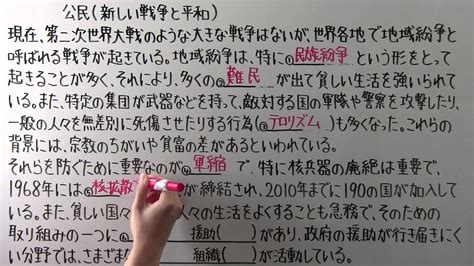 公民(新しい戦争と平和)
現在、第二次世界大戦のような大きな戦争はないが、世界各地で地域紛争と
呼ばれる戦争が起きている。地域紛争は、特に①民族紛争という形をとって
起きることが多く、それにより、多くの②難民が出て貧しい生活を強いられて
いる。また、特定の集団が武器などを持って、敵対する国の軍隊や警察を攻撃したり、
一般の人々を無差別に死傷させたりする行為(③テロリズム)も多くなった。これらの
背景には、宗教のちがいや貧富の差があるといわれている。
それらを防ぐために重要なのが④軍縮で、特に核兵器の廃絶は重要で、
1968年には⑤核拡散が締結され、2010年までに190の国が加入して
いる。また、貧しい国々人々の生活をよくすることも急務で、そのための
取り組みの一つに援助( )があり、政府の援助が行き届きにく
い分野では、さまざま組織( )が活動している。